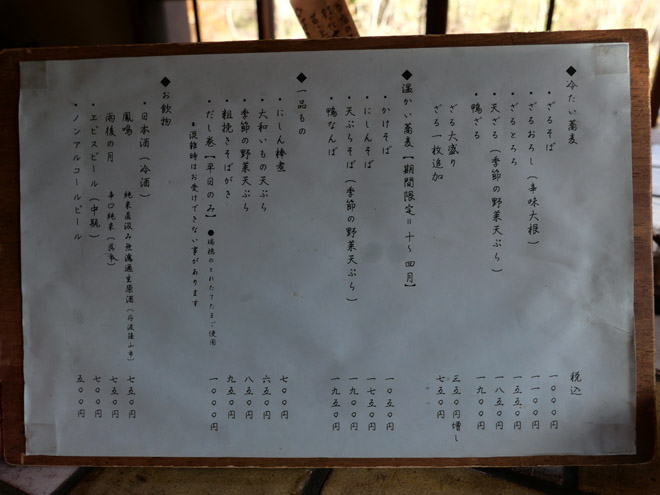 ◆冷たい蕎麦 税込
・ざるそば 一〇〇〇円
・ざるおろし(辛味大根) 一一〇〇円
・ざるとろろ 一三五〇円
・天ざる(季節の野菜天ぷら) 一八五〇円
・鴨ざる 一九〇〇円
ざる大盛り 三五〇円増し
ざる一枚追加 七五〇円
◆温かい蕎麦【期間限定=十~四月】
・かけそば 一〇五〇円
・にしんそば 一七五〇円
・天ぷらそば(季節の野菜天ぷら) 一九〇〇円
・鴨なんば 一九五〇円
◆一品もの
・にしん棒煮 七〇〇円
・大和いもの天ぷら 六五〇円
・季節の野菜天ぷら 八五〇円
・粗挽きそばがき 九五〇円
・だし巻【平日のみ】●瑞穂のとれたてたまご使用 一〇〇〇円
●混雑時はお受けできない事があります
◆お飲物
・日本酒(冷酒)
鳳鳴 純米直汲み無濾過生原酒(丹波篠山市) 七五〇円
雨後の月 辛口純米(呉市) 七五〇円
・エビスビール(中瓶) 七〇〇円
・ノンアルコールビール 五〇〇円